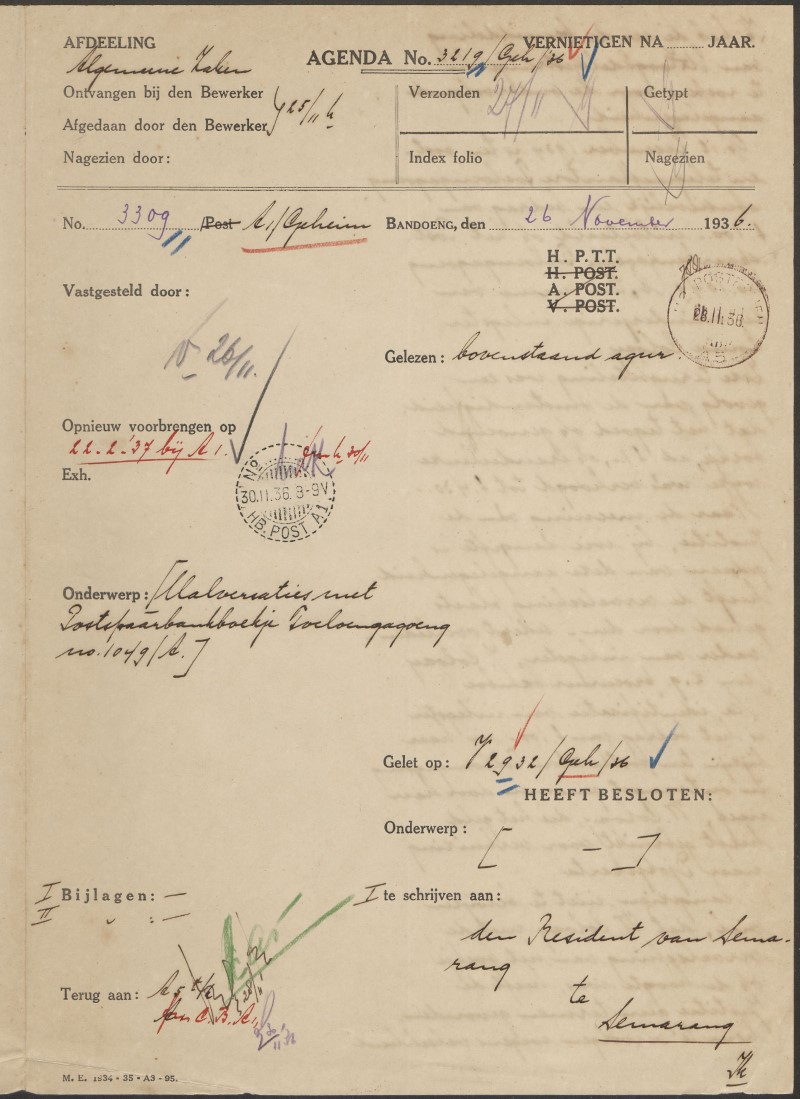 AFDEELING
Algemeene Zaken
AGENDA No. 3219/Geh/36
VERNIETIGEN NA ........ JAAR.
Ontvangen bij den Bewerker
Afgedaan door den Bewerker
25/11 h
Nagezien door:
Verzonden
27/11
Getypt
Index folio
Nagezien
No. 3309 /Post A1/Geheim BANDOENG, den 26 November 1936.
H. P.T.T.
H. POST.
A. POST.
V. POST.
Vastgesteld door:
26/11.
Gelezen: bovenstaand
Opnieuw voorbrengen op
22-2-'37 bij A 1.
30/11
Exh.
No
30.11.36. 8-9V
HB. POST A1
Onderwerp: [Malversaties met
Postspaarbankboekje Toeloengagoeng
no. 1049/A.]
Gelet op: 2932/Geh/36
HEEFT BESLOTEN:
Onderwerp: [ — ]
I Bijlagen: —
II „ : —
I te schrijven aan:
den Resident van Sema-
rang
te
Semarang
Terug aan: A 5
C. B. A1
M. E. 1934 • 35 • A3 - 95.